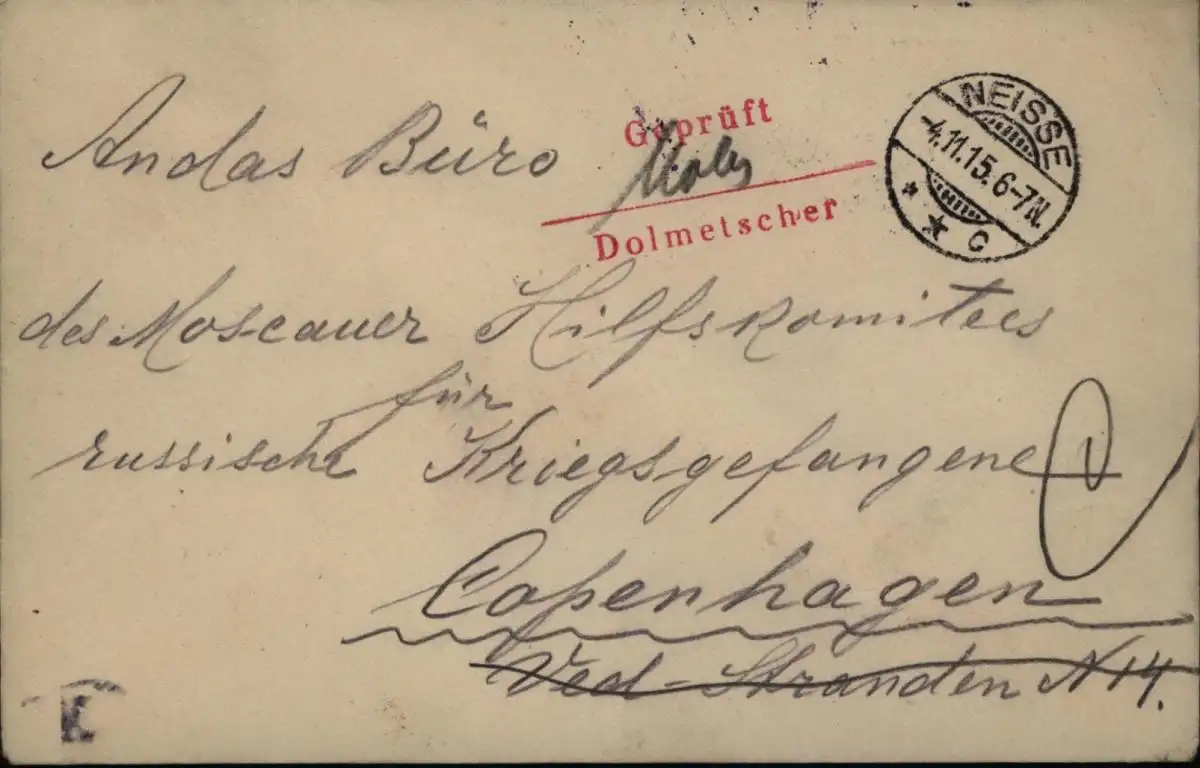 Andas Büro
Geprüft
Dolmetscher
NEISSE
-4.11.15. 6-7N.
* * c
des Moscauer Hilfskomitees
für
russische Kriegsgefangene
Copenhagen
Ved-Stranden N 14.
K